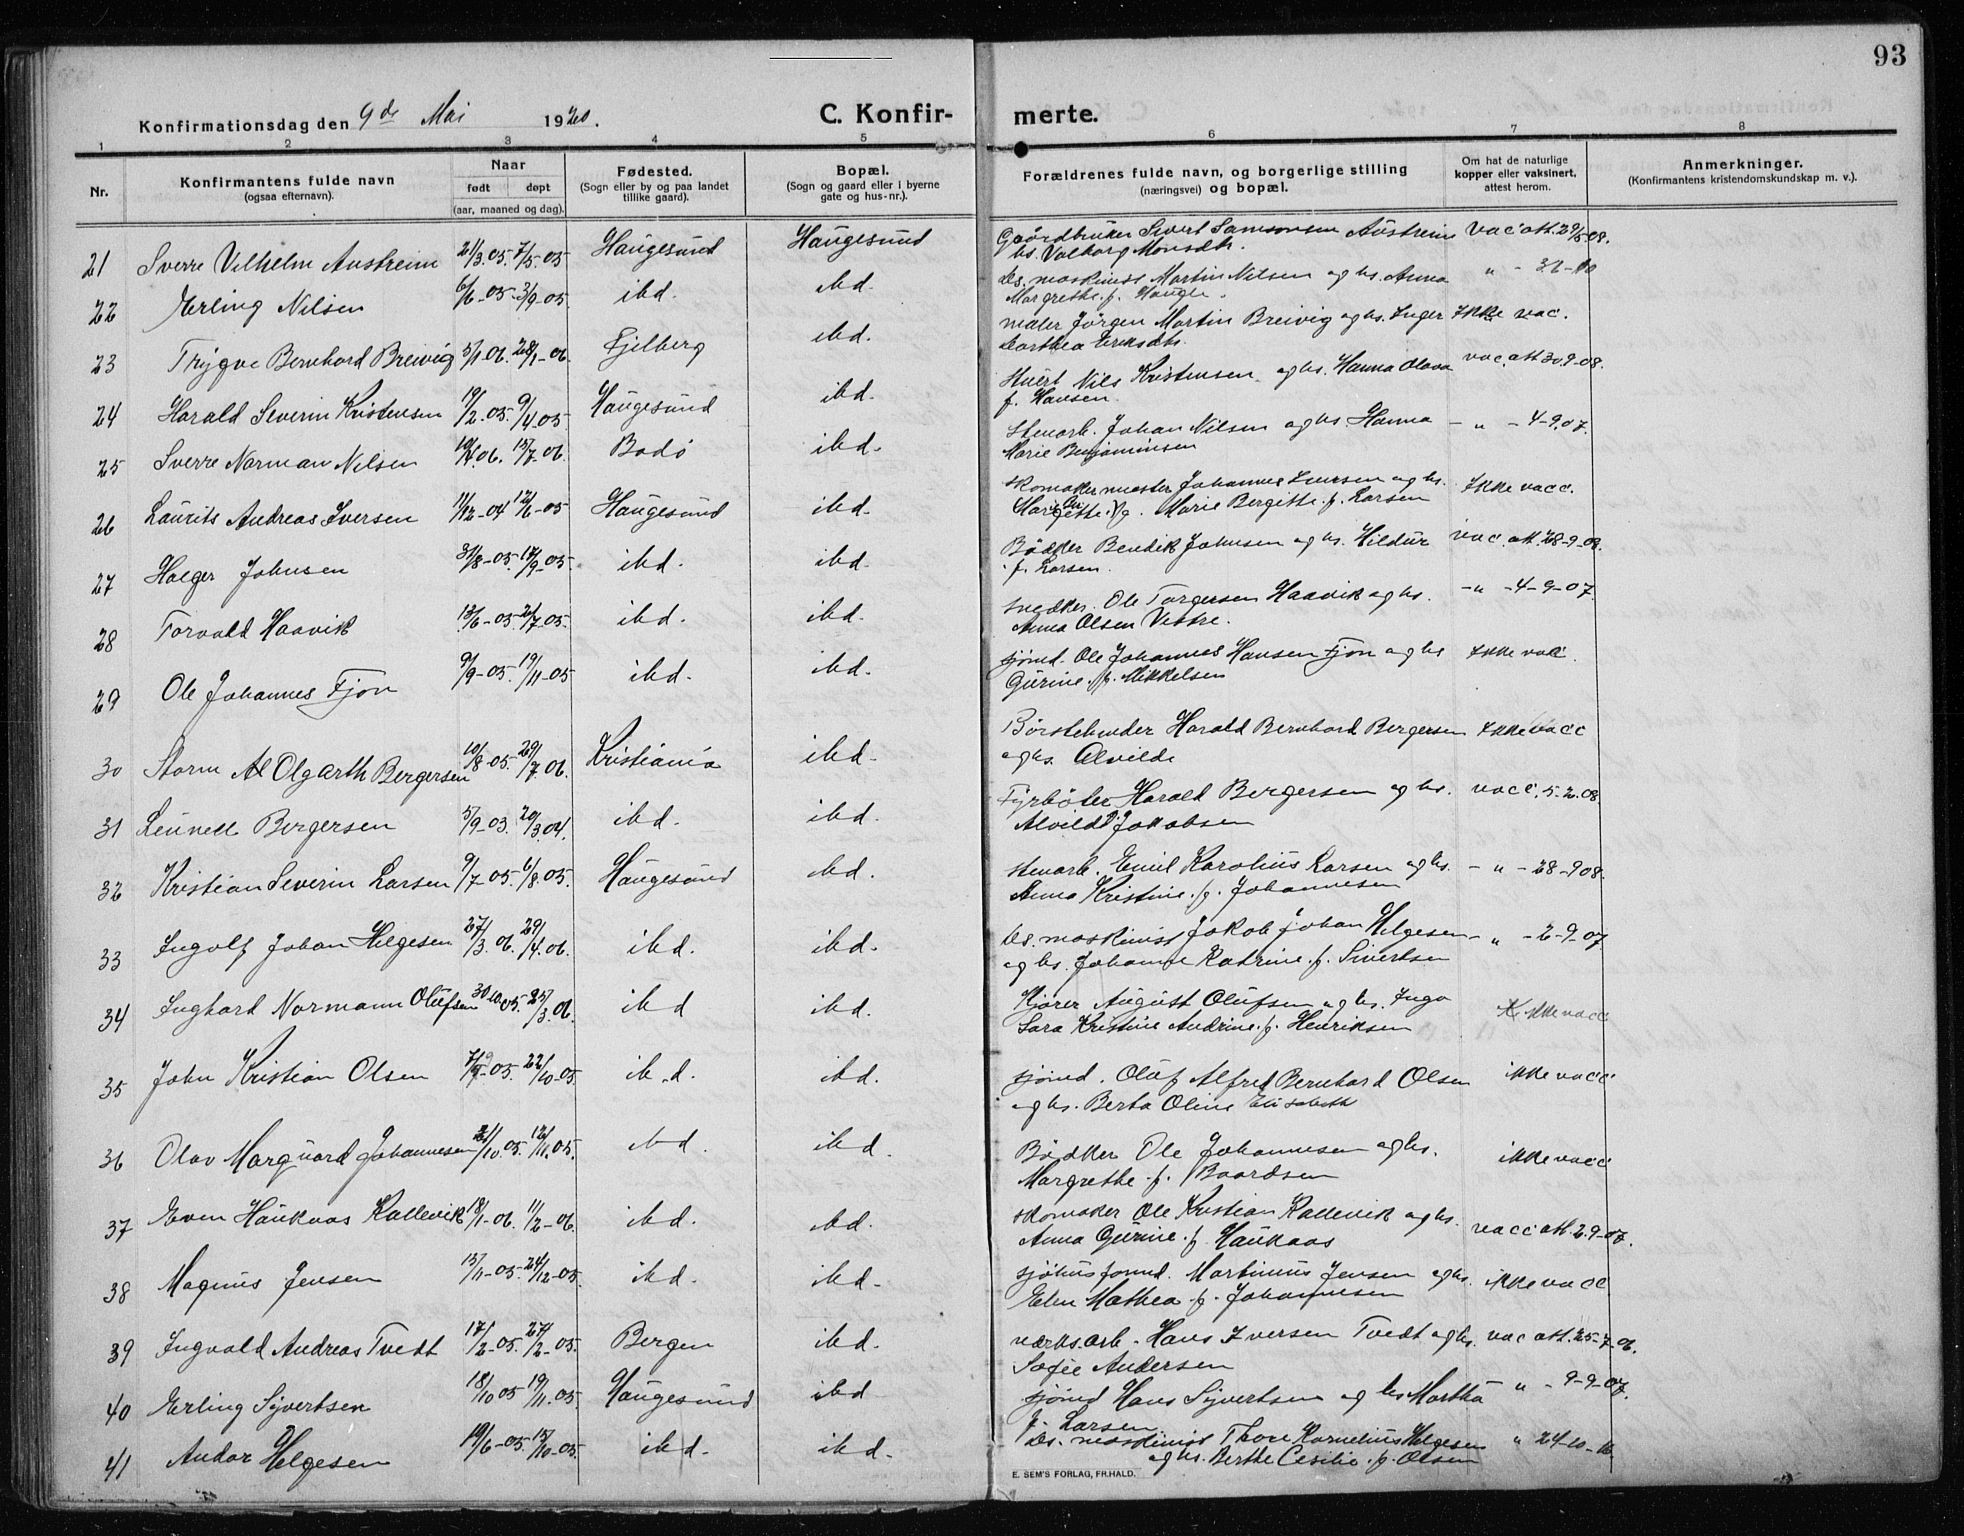 93
Konfirmationsdag den 9de Mai 1920. C. Konfir- merte.
1 2 3 4 5 6 7 8
Nr. Konfirmantens fulde navn (ogsaa efternavn). Naar født døpt (aar, maaned og dag). Fødested. (Sogn eller by og paa landet tillike gaard). Bopæl. (Sogn og gaard eller i byerne gate og hus-nr.). Forældrenes fulde navn, og borgerlige stilling (næringsvei) og bopæl. Om hat de naturlige kopper eller vaksinert, attest herom. Anmerkninger. (Konfirmantens kristendomskundskap m. v.).
21 Sverre Vilhelm Austreim 21/3.05. 7/5.05 Haugesund Haugesund Gaardbruker Sivert Samsonsen Austreim vac. att. 29/5-08.
hs. Valborg Monsdtr.
22 Erling Nilsen 6/6-05. 3/9.05. ibd. ibd. Ds. maskinist Martin Nilsen og hs. Anna
Margrethe f. Hauge.
23 Trygve Bernhard Breivig 5/1.06. 28/1-06. Fjelberg ibd. maler Jörgen Martin Breivig og hs. Inger Ikke vac.
Dorthea Eriksdtr.
24 Harald Severin Kristensen 19/2.05. 9/4.05 Haugesund ibd. Stuert Nils Kristensen og hs. Hanna Olava vac. att. 30-9-08.
f. Hansen.
25 Sverre Norman Nilsen 15/7-06. Bodö ibd. Stenarb. Johan Nilsen og hs. Hanna - " - 4-9.07.
Marie Benjaminsen
26 Laurits Andreas Iversen 11/12-04 Haugesund ibd. skomakermester Johannes Iversen og hs. Ikke vacc.
Marie Bergitte f. Larsen
27 Holger Johnsen 31/8-05. 17/9-05. ibd. ibd. Bödker Bendik Johnsen og hs. Hildur vac. att. 28-9-08.
f. Larsen.
28 Torvald Haavik 13/6-05. ibd. ibd. snedker. Ole Torgersen Haavik og hs. -"- 4-9-07.
Anna Olsen Vestre.
29 Ole Johannes Fjon 9/9-05. 19/11-05 ibd. ibd. sjömd. Ole Johannes Hansen Fjon og hs Ikke vacc.
Gurine f. Mikkelsen
30 Storm Al Olgarth Bergersen 10/8-05. 29/7.06. Kristiania ibd. Børstebinder Harald Bernhard Bergersen Ikke vacc
og hs. Alvilde
31 Leunell Bergersen 5/9-03. 20/3.04. ibd. ibd. Fyrböter Harald Bergersen og hs. vacc. 5-2.08
Alvilde Jakobsen
32 Kristian Severin Larsen 9/7-05. 6/8.05. Haugesund ibd. stenarb. Emil Karolius Larsen og hs. - " - 28-9 08.
Anna Kristine f. Johannesen
33 Ingolf Johan Helgesen 27/3.06. 29/4.06. ibd. ibd. Ds. maskinist Jakob Johan Helgesen - " - 2-9-07
og hs. Johanne Katrine f. Sivertsen
34 Inghard Normann Olufsen 30/10 05. 25/3.06. ibd ibd. Kjører August Olufsen og hs. Inga ikke vacc
Sara Kristine Andrine f. Henriksen
35 John Kristian Olsen 7/9-05. 22/10-05. ibd. ibd. sjömd. Oluf Alfred Bernhard Olsen ikke vacc
og hs. Berta Oline Elisabeth
36 Olav Marqvard Johannesen 12/11.05. ibd. ibd. Bödker Ole Johannesen og hs. ikke vacc
Margrethe f. Baardsen
37 Even Haukaas Kallevik 18/1-06. 11/2-06. ibd. ibd. skomaker Ole Kristian Kallevik og hs. vacc att. 2.9-07.
Anna Gurine f. Haukaas
38 Magnus Jensen 15/11-05. 24/12-05. ibd. ibd. sjöhusformd. Martinius Jensen og hs. ikke vacc
Elen Mathea f. Johannesen
39 Ingvald Andreas Tvedt 17/2-05. 27/2-05. Bergen ibd. verksarb. Hans Iversen Tvedt og hs. vac att. 25-7-06.
Sofie Andersen
40 Erling Sijvertsen 18/10 05 19/11.05. Haugesund ibd sjömd Hans Sijvertsen og hs Martha " - 9-9-07.
f. Larsen
41 Andor Helgesen 19/6-05. 15/10-05. ibd. ibd. Ds. maskinist Thore Kornelius Helgesen " 24-10-10.
og hs. Berthe Cesilie f. Olsen
E. SEM'S FORLAG, FR.HALD.